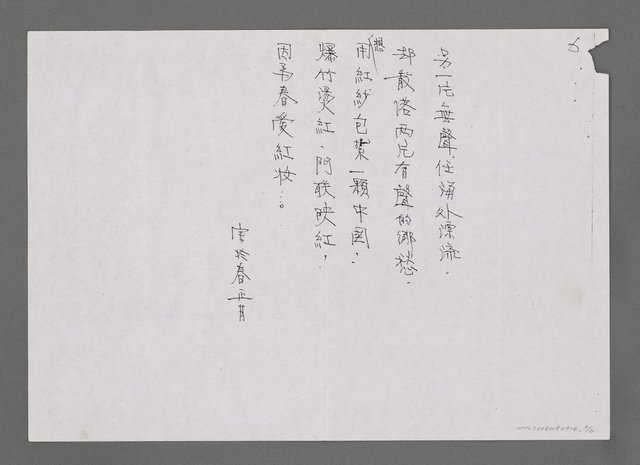 6
另一片無聲.任海外漂流.
却散落兩片有聲的鄉愁.
想用紅紗包紮一顆中国.
爆竹燙紅.門联映紅,
因為春愛紅妆…。
写於春正月